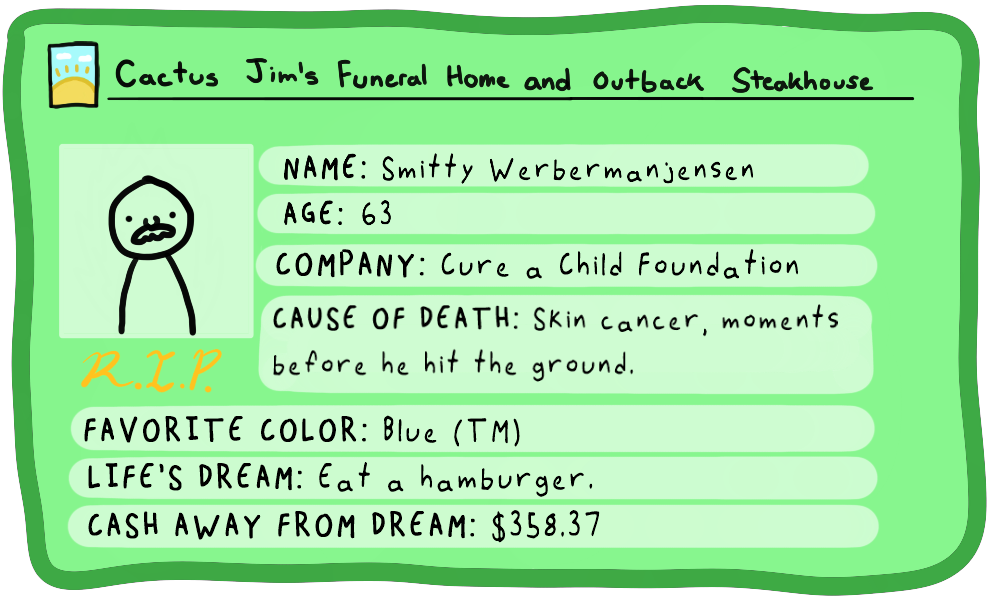 Cactus Jim's Funeral Home and Outback Steakhouse
NAME: Smitty Werbermanjensen
AGE: 63
COMPANY: Cure a Child Foundation
CAUSE OF DEATH: Skin cancer, moments
before he hit the ground.
R.I.P.
FAVORITE COLOR: Blue (TM)
LIFE'S DREAM: Eat a hamburger.
CASH AWAY FROM DREAM: $358.37